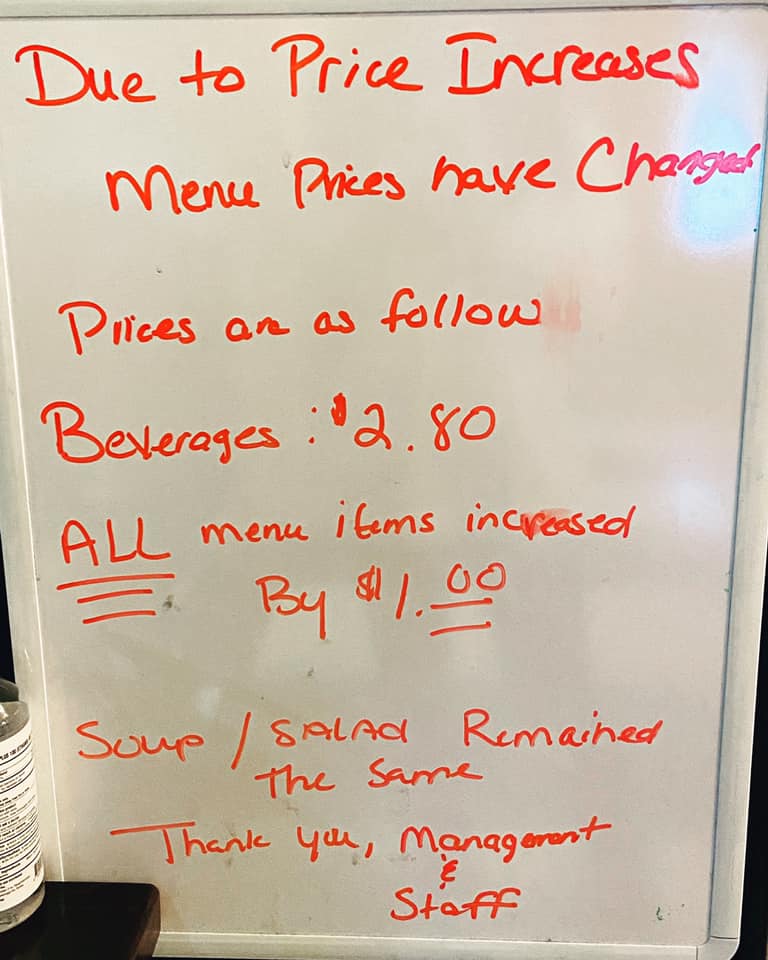 Due to Price Increases
Menu Prices have Changed
Prices are as follow
Beverages : $2.80
ALL menu items increased
By $1.00
Soup / SALAD Remained
the Same
Thank you, Management
&
Staff